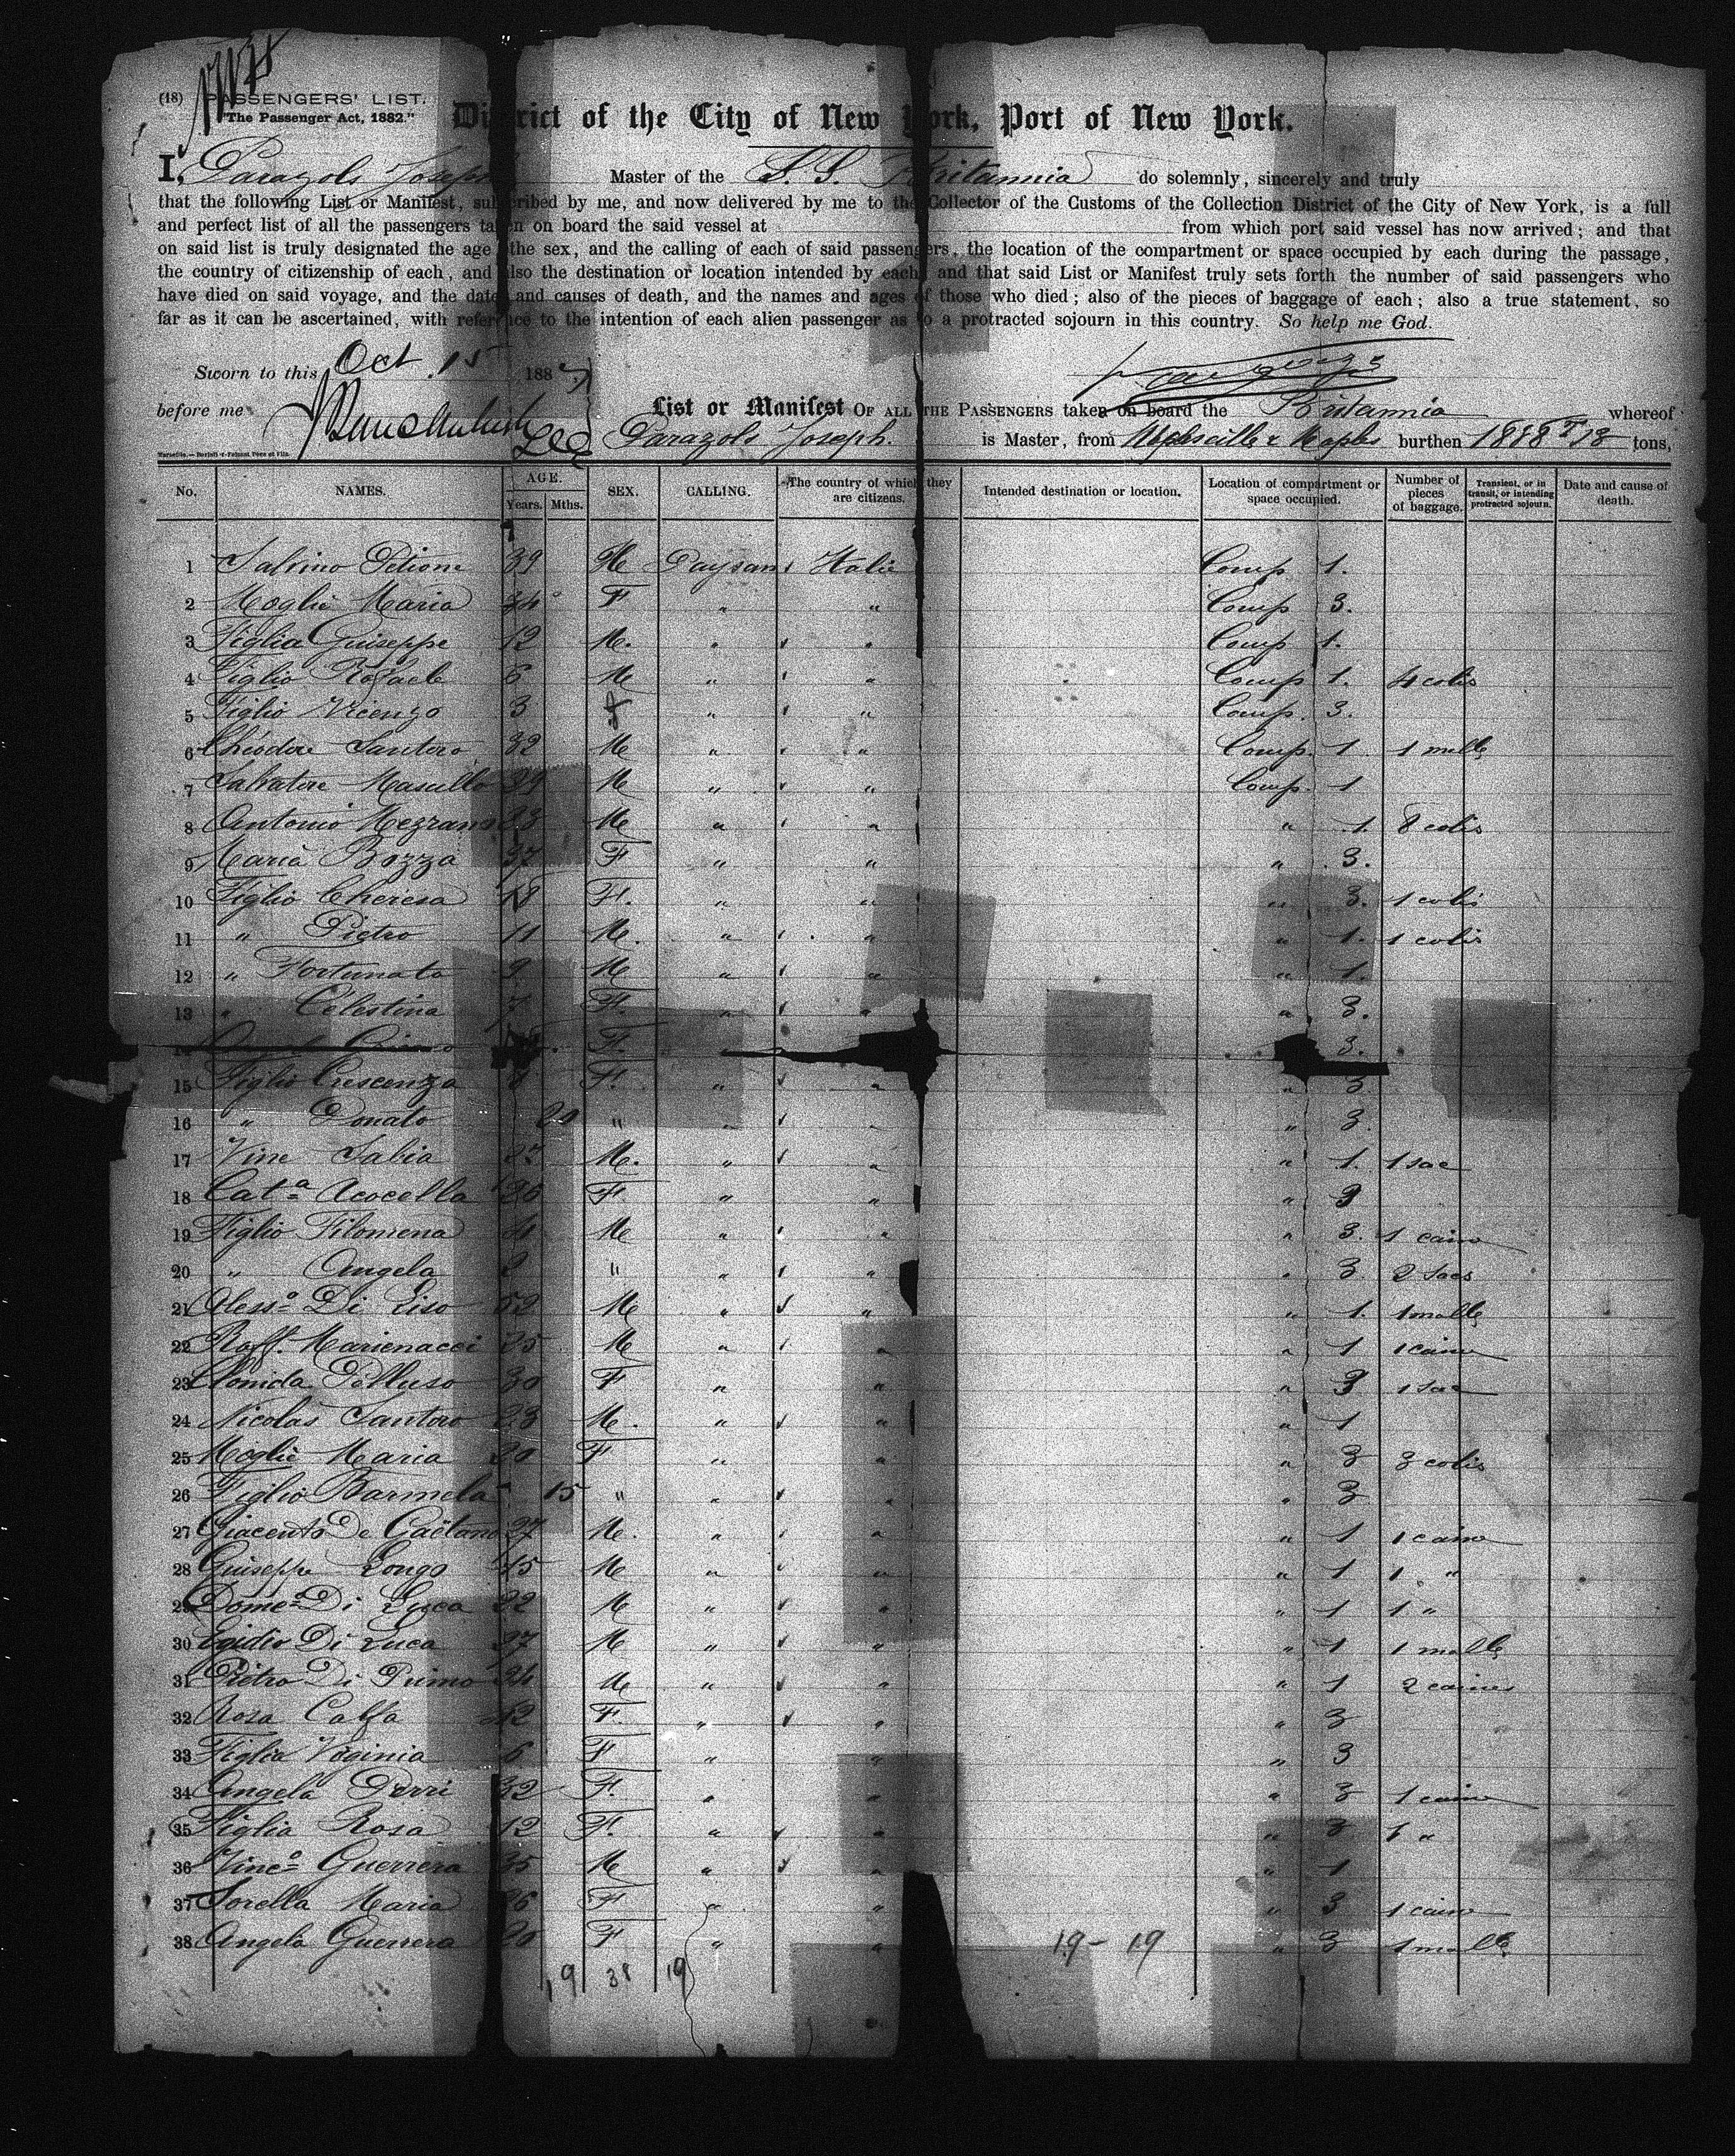 (18) PASSENGERS' LIST.
"The Passenger Act, 1882."
District of the City of New York, Port of New York.
I, Parazols Joseph Master of the S. S. Britannia do solemnly, sincerely and truly
that the following List or Manifest, subscribed by me, and now delivered by me to the Collector of the Customs of the Collection District of the City of New York, is a full
and perfect list of all the passengers taken on board the said vessel at from which port said vessel has now arrived; and that
on said list is truly designated the age, the sex, and the calling of each of said passengers, the location of the compartment or space occupied by each during the passage,
the country of citizenship of each, and also the destination or location intended by each, and that said List or Manifest truly sets forth the number of said passengers who
have died on said voyage, and the date and causes of death, and the names and ages of those who died; also of the pieces of baggage of each; also a true statement, so
far as it can be ascertained, with reference to the intention of each alien passenger as to a protracted sojourn in this country. So help me God.
Sworn to this Oct. 15 1887
before me
List or Manifest OF ALL THE PASSENGERS taken on board the Britannia whereof
Parazols Joseph. is Master, from Marseille & Naples burthen tons,
No. NAMES. AGE. Years. Mths. SEX. CALLING. The country of which they are citizens. Intended destination or location. Location of compartment or space occupied. Number of pieces of baggage. Transient, or in transit, or intending protracted sojourn. Date and cause of death.
1 39 M Paysans Italie Comp 1.
2 Moglie Maria 34 F " " Comp 3.
3 Figlia Guiseppe 12 M. " " Comp 1.
4 Figlio Rafaele 6 M " " Comp 1. 4 colis
5 Figlio Vicenzo 3 f " " Comp. 3.
6 Theodore Santoro 32 M " " Comp. 1 1 malle
7 Salvatore Masullo 29 M " " Comp. 1
8 Antonio 23 M " " " 1. 8 colis
9 Maria Bozza 37 F " " " 3.
10 Figlio Cheresa 18 F. " " " 3. 1 colis
11 " Pietro 11 M. " " " 1. 1 colis
12 " Fortunato 9 M " " " 1.
13 " Célestina 7 F. " " " 3.
14 F. 3.
15 Figlio Crescenza F. " " " 3
16 " Donato 20 " " " " 3.
17 Vine Sabia 27 M. " " " 1. 1 sac
18 Cat.a Acocella 26 F " " " 3
19 Figlio Filomena 4 M " " " 3. 1 caisse
20 " Angela 2 " " " " 3 2 sacs
21 Aless.o Di Liso 52 M " " " 1. 1 malle
22 Raff. Marienacci 25 M " " " 1 1 caisse
23 Pelluso 30 F " " " 3 1 sac
24 Nicolas Santoro 23 M. " " " 1
25 Moglie Maria 20 F " " " 3 3 colis
26 Figlio Barmela 15 " " " " 3
27 Giacento De Gaëtano 27 M. " " " 1 1 caisse
28 Guiseppe Longo 45 M " " " 1 1 "
29 Dome.o Di Luca 22 M " " " 1 1 "
30 Egidio Di Luca 27 M " " " 1 1 malle
31 Pietro Di Primo 24 M " " " 1 2 caisses
32 Rosa Calfa 42 F. " " " 3
33 Figlia Virginia 6 F " " " 3
34 Angela Perri 32 F. " " " 3 1 caisse
35 Figlia Rosa 12 F. " " " 3 1 "
36 Vinc.o Guerrera 35 M " " " 1
37 Sorella Maria 26 F " " " 3 1 caisse
38 Angela Guerrera 20 F " " " 3 1 malle
19 38 19 19 - 19